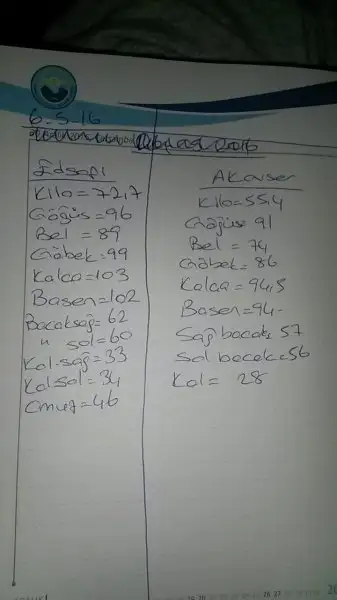 6-5-16
Kilo=72,7
Göğüs=96
Bel = 89
Göbek=99
Kalça=103
Basen=102
Bacaksağ= 62
" sol=60
Kol.sağ=33
Kolsol=34
Omuz=46
Akavser
Kilo=55,4
Göğüs 91
Bel = 74
Göbek= 86
Kalça = 94,5
Basen=94-
Sağ bacak= 57
Sol bacak=56
Kol= 28